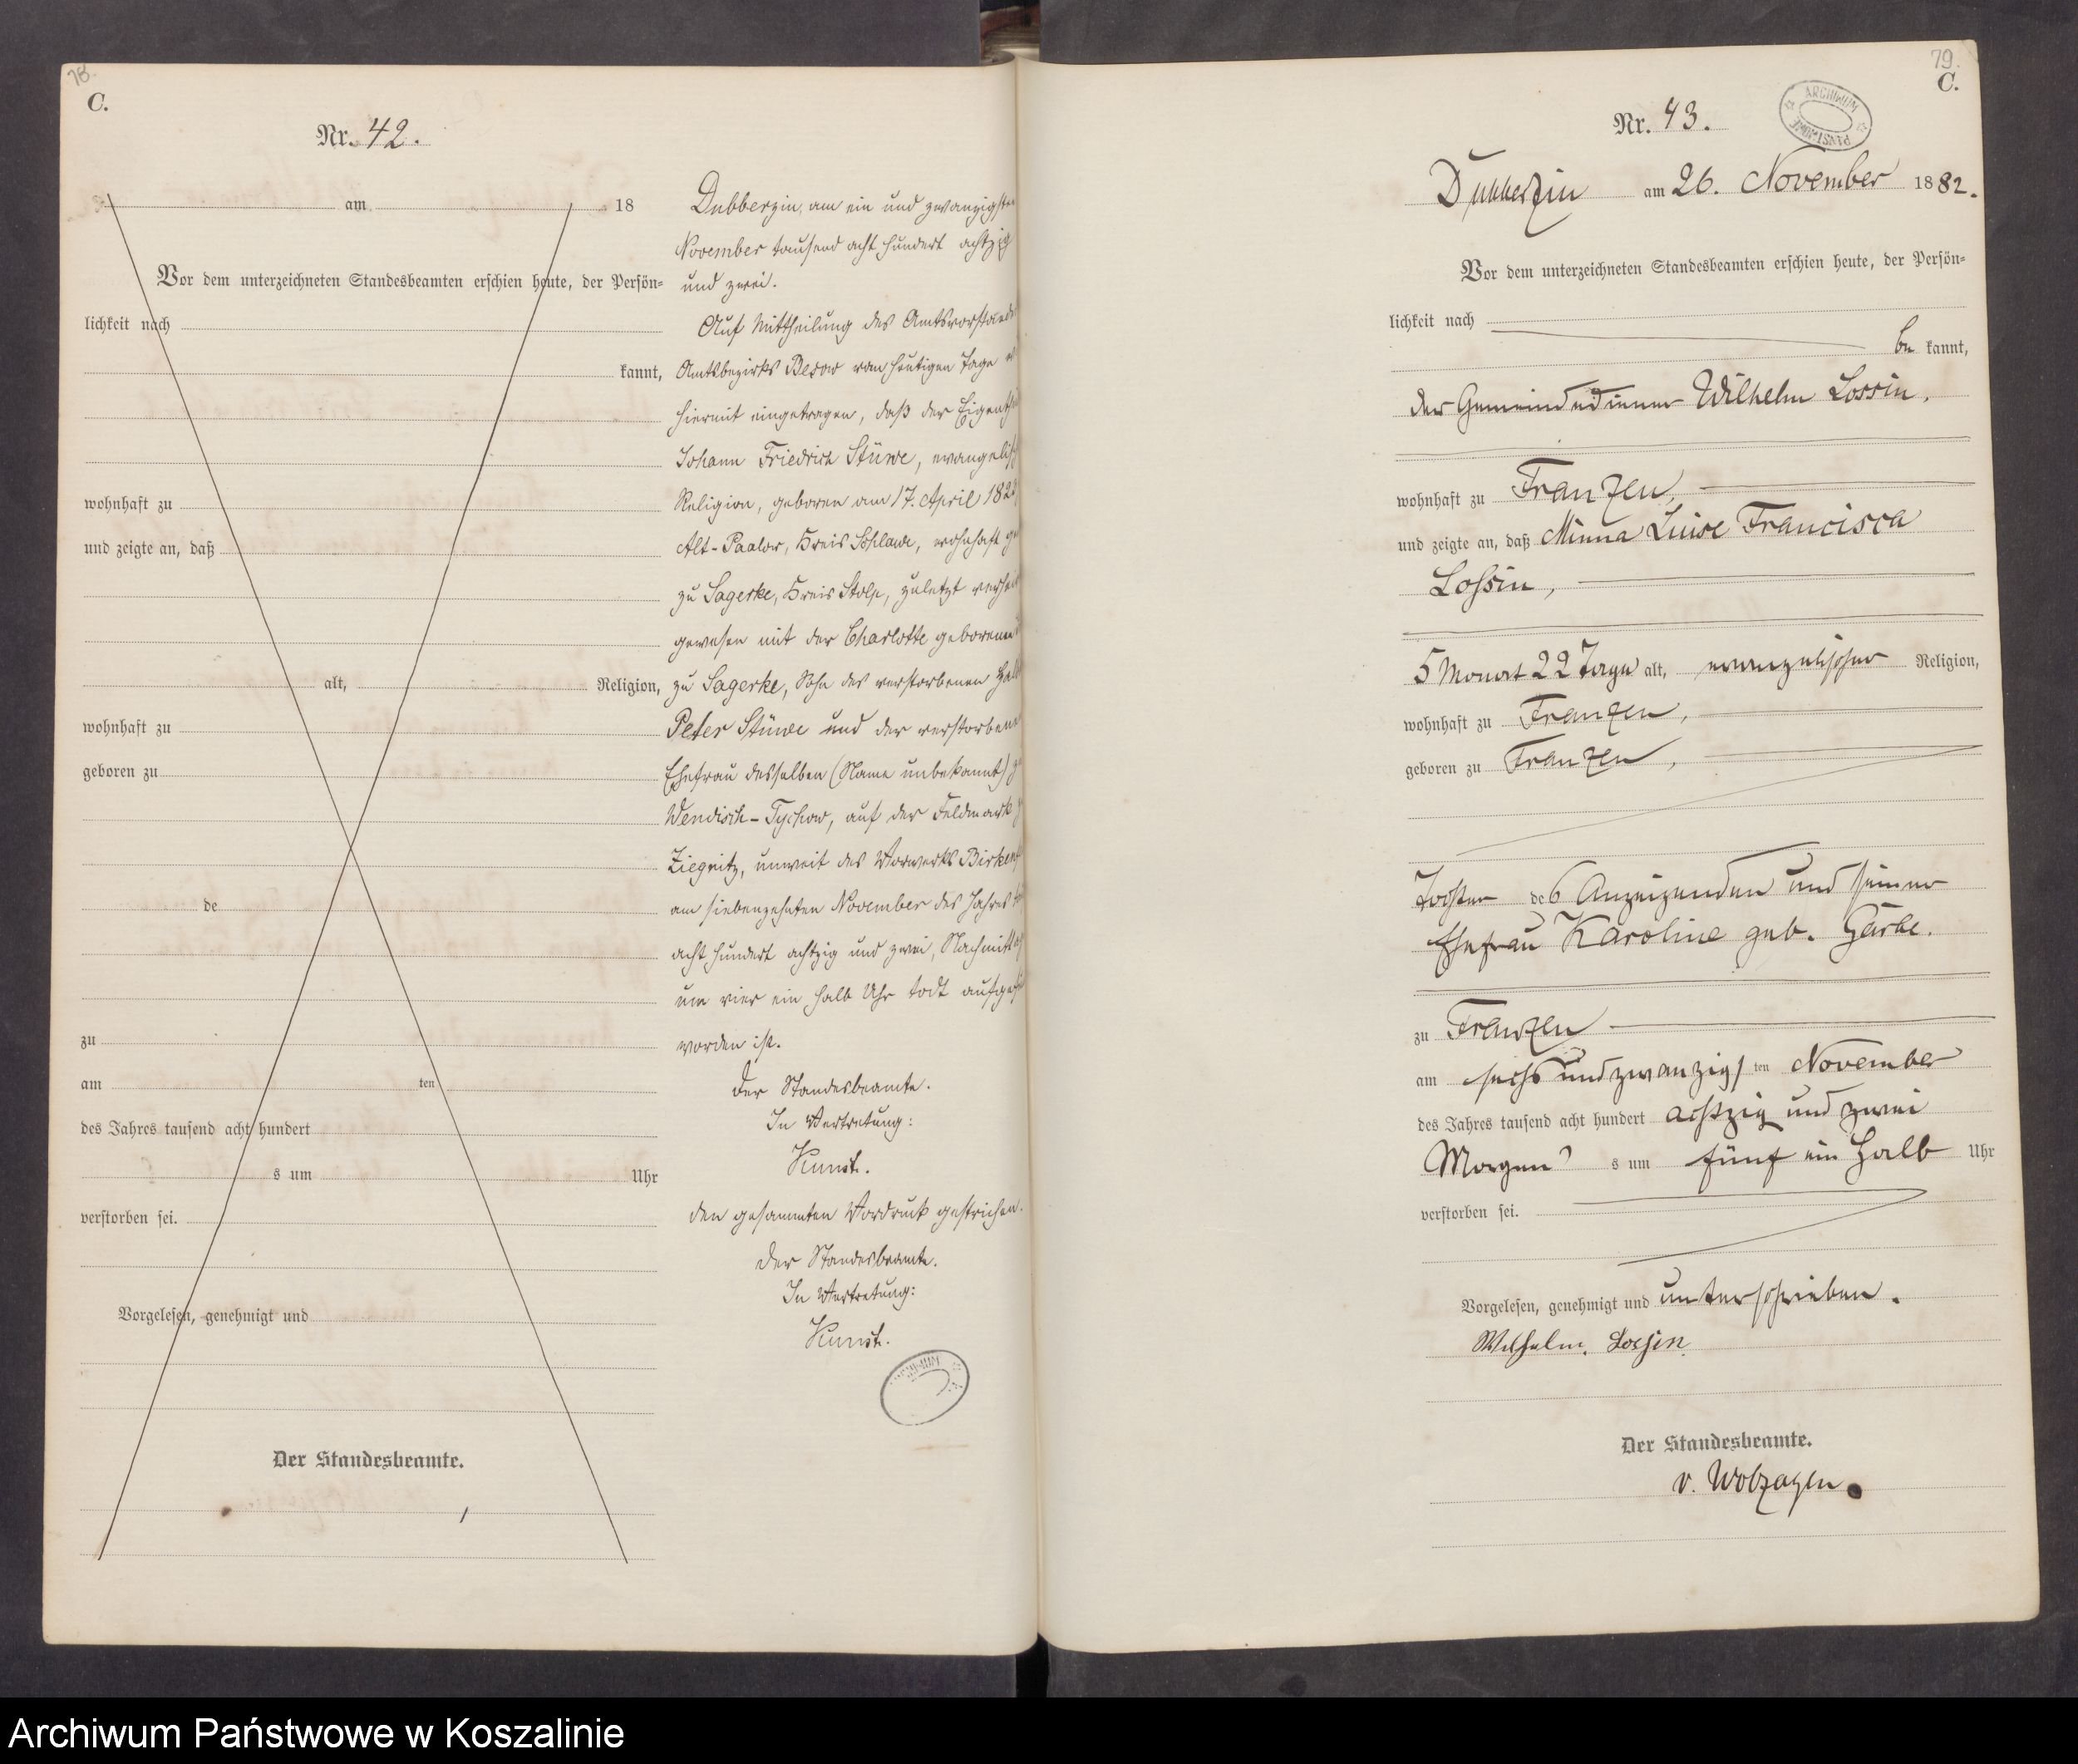 78.
C.
Nr. 42.
am 18
Vor dem unterzeichneten Standesbeamten erschien heute, der Persön=
lichkeit nach
kannt,
wohnhaft zu
und zeigte an, daß
alt, Religion,
wohnhaft zu
geboren zu
de
zu
am ten
des Jahres tausend acht hundert
s um Uhr
verstorben sei.
Vorgelesen, genehmigt und
Der Standesbeamte.
Dubberzin, am ein und zwanzigsten
November tausend acht hundert achtzig
und zwei.
Auf Mittheilung des Amtsvorstande
Amtsbezirks Besow vom heutigen Tage
hiermit eingetragen, daß der Eigenth
Johann Friedrich Stüwe, evangelisch
Religion, geboren am 17. April 182
Alt-Paalow, Kreis Schlawe, wohnhaft ge
zu Sagerke, Kreis Stolp, zuletzt verhei
gewesen mit der Charlotte geborenen
zu Sagerke, Sohn des verstorbenen Halb
Peter Stüwe und der verstorbenen
Ehefrau desselben (Name unbekannt) z
Wendisch-Tychow, auf der Feldmark
Ziegnitz, unweit des Vorwerks Birken
am siebenzehnten November des Jahres
acht hundert achtzig und zwei, Nachmittag
um vier ein halb Uhr todt aufgefu
worden ist.
Der Standesbeamte.
In Vertretung:
Kunst.
Den gesammten Vordruck gestrichen.
Der Standesbeamte.
In Vertretung:
Kunst.
79.
C.
Nr. 43.
ARCHIWUM PAŃSTWOWE
Dubberzin am 26. November 1882.
Vor dem unterzeichneten Standesbeamten erschien heute, der Persön=
lichkeit nach
be kannt,
der Gemeindediener Wilhelm Lossin,
wohnhaft zu Franzen,
und zeigte an, daß Minna Luise Francisca
Lossin,
5 Monat 22 Tage alt, evangelischer Religion,
wohnhaft zu Franzen,
geboren zu Franzen,
Tochter des Anzeigenden und seiner
Ehefrau Karoline geb. Garbe.
zu Franzen
am sechs und zwanzigsten November
des Jahres tausend acht hundert achtzig und zwei
Morgens um fünf ein halb Uhr
verstorben sei.
Vorgelesen, genehmigt und unterschrieben.
Wilhelm Lossin
Der Standesbeamte.
v. Wolzogen.
Archiwum Państwowe w Koszalinie